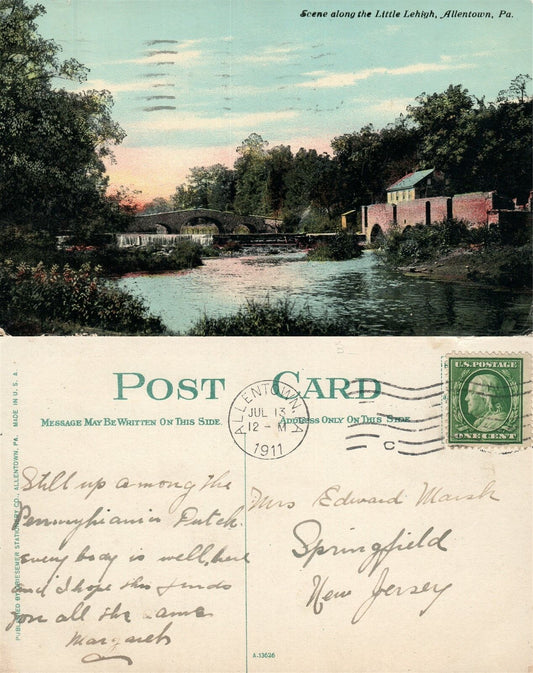 Scene along the Little Lehigh, Allentown, Pa.
POST CARD
MESSAGE MAY BE WRITTEN ON THIS SIDE.
ADDRESS ONLY ON THIS SIDE.
ALLENTOWN, PA
JUL 13
12-M
1911
C
U.S. POSTAGE
ONE CENT
Still up among the
Pennsylvania Dutch.
every body is well, here
and I hope this finds
you all the same
Margaret
Mrs Edward Marsh
Springfield
New Jersey
PUBLISHED BY RIESEMER STATIONERY CO., ALLENTOWN, PA. MADE IN U.S.A.
A-13626